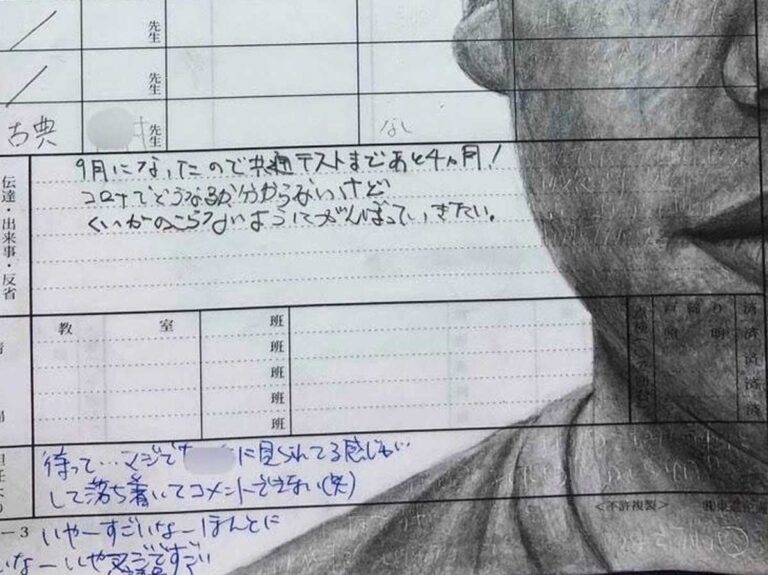 先生
先生
古典
先生
なし
伝達・出来事・反省
9月になったので共通テストまであと4ヵ月!
コロナでどうなるか分からないけど
くいがのこらないようにがんばっていきたい。
教室
班
班
班
班
班
済
済
済
済
済
待って…マジで
に見られてる感じが
して落ち着いてコメントできない(笑)
<不許複製>
-3
いやーすごいなーほんとに
いなーいやマジですごい